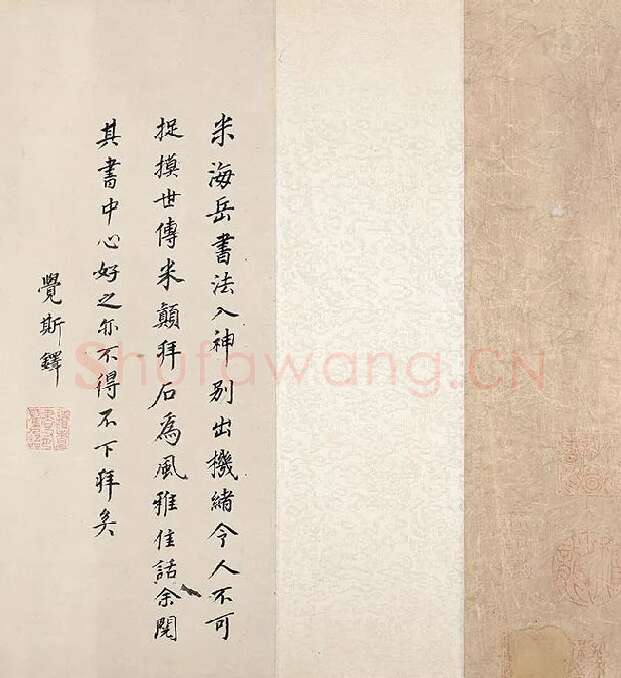 米海岳書法入神別出機緒令人不可
捉摸世傳米顛拜石為風雅佳話余閱
其書中心好之亦不得不下拜矣
覺斯鐸
Shufawang.CN